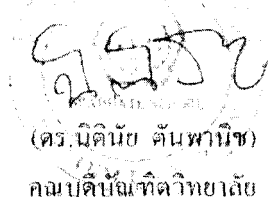 (ดร.นิตินัย ตันพานิช)
คณบดีบัณฑิตวิทยาลัย